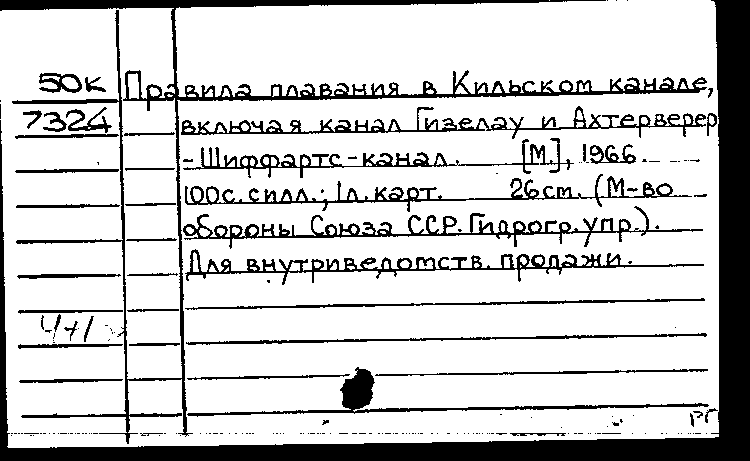 50К Правила плавания в Кильском канале,
7324 включая канал Гизелау и Ахтерверер
-Шиффартс-канал. [М.], 1966.
100с. силл.; 1л. карт. 26cm. (М-во
обороны Союза ССР. Гидрогр. упр.).
Для внутриведомств. продажи.
4+1
РГ